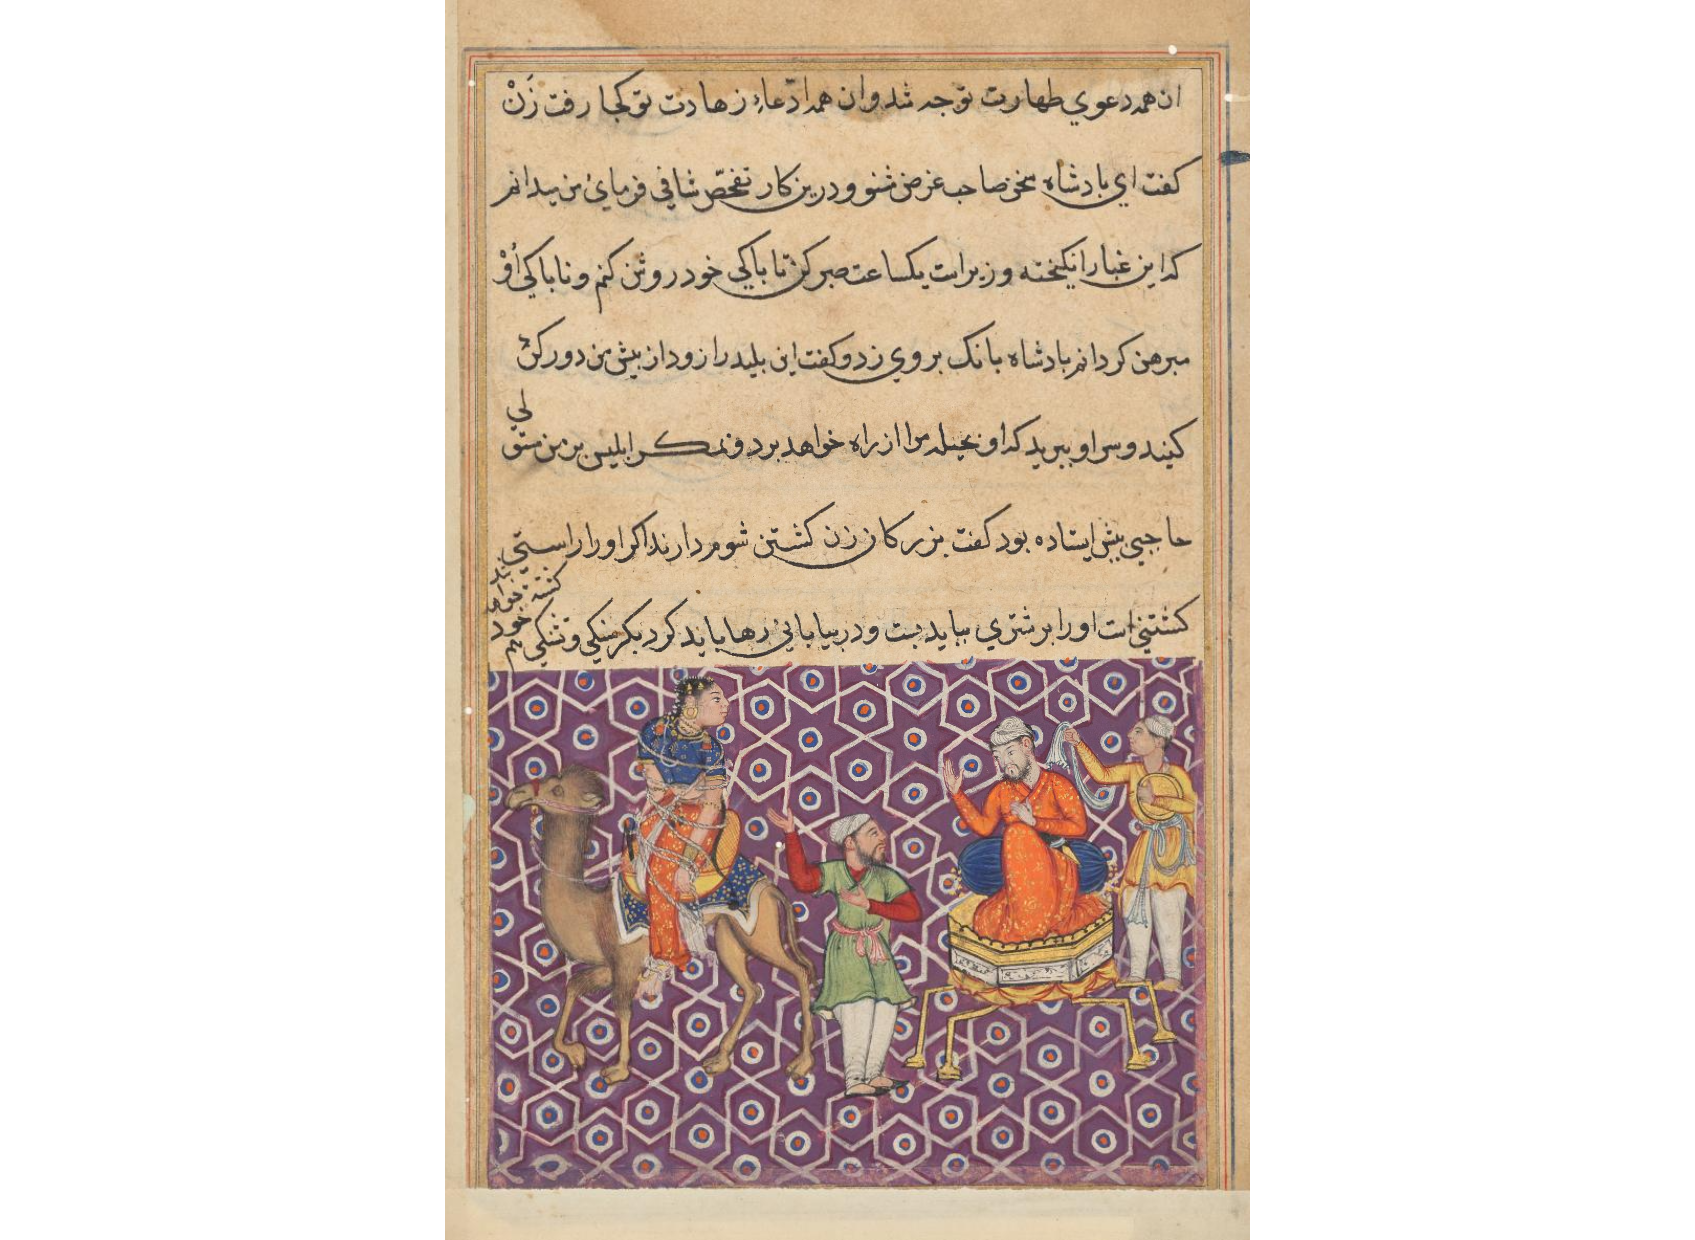 ان همه دعوي طهارت تو جه شد وان همه ادّعاءِ زهادت تو كجا رفت زَنْ
كفت اي بادشاه سخن صاحب غرض مشنو ودرين كار تفحّص شافي فرماي من ميدانم
كه اين غبار انكيخته وزيراست يكساعت صبر كن تا باكي خود روشن كنم وناباكي أوْ
مبرهن كردانم بادشاه بانك بر وي زد وكفت اين بليد را زود از بيش من دور كن
كنيد وسر او ببريد كه او بحيله مرا از راه خواهد برد و مكر ابليس بر من مستو
لي
حاجبي بيش ايستاده بود كفت بزركان زن كشتن شوم دارند اكر او را راستي
كشتني است او را بر شتري ببايد بست ودر بياباني رها بايد كرد بكرسنكي وتشنكي هم
خود
كشته خواهد